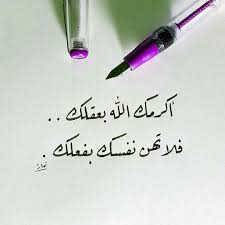 أكرمك الله بعقلك ..
فلا تهن نفسك بفعلك .